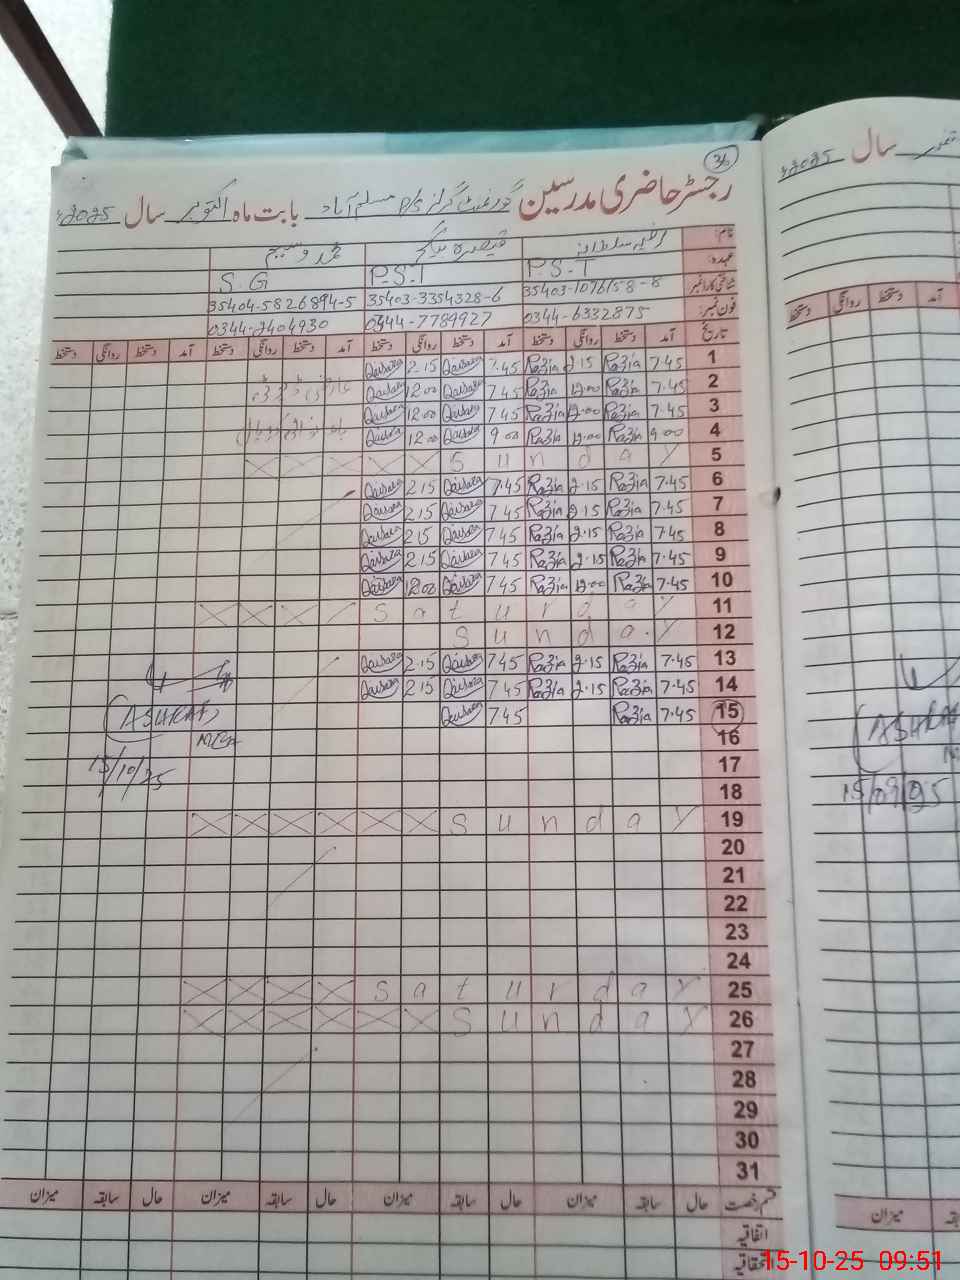 36
رجسٹر حاضری مدرسین گورنمنٹ گرلز P/S مسلم آباد بابت ماہ اکتوبر سال 2025ء
نام: رضیہ سلطانہ قیصرہ بیگم محمد وسیم
عہدہ: P.S.T P.S.T S.G
شناختی کارڈ نمبر 35403-1076158-8 35403-3354328-6 35404-5826894-5
فون نمبر: 0344-6332875 0344-7789927 0344-2404930
تاریخ آمد دستخط روانگی دستخط آمد دستخط روانگی دستخط آمد دستخط روانگی دستخط آمد دستخط روانگی دستخط
1 7.45 Razia 2.15 Razia 7.45 Qaisara 2.15 Qaisara
2 7.45 Razia 12.00 Razia 7.45 Qaisara 12.00 Qaisara
3 7.45 Razia 12.00 Razia 7.45 Qaisara 12.00 Qaisara
4 9.00 Razia 12.00 Razia 9.00 Qaisara 12.00 Qaisara
5 Sunday
6 7.45 Razia 2.15 Razia 7.45 Qaisara 2.15 Qaisara
7 7.45 Razia 2.15 Razia 7.45 Qaisara 2.15 Qaisara
8 7.45 Razia 2.15 Razia 7.45 Qaisara 2.15 Qaisara
9 7.45 Razia 2.15 Razia 7.45 Qaisara 2.15 Qaisara
10 7.45 Razia 12.00 Razia 7.45 Qaisara 12.00 Qaisara
11 Saturday
12 Sunday
13 7.45 Razia 2.15 Razia 7.45 Qaisara 2.15 Qaisara
14 7.45 Razia 2.15 Razia 7.45 Qaisara 2.15 Qaisara
15 7.45 Razia 7.45 Qaisara
(ASHRAF)
16
15/10/25
17
18
19 Sunday
20
21
22
23
24
25 Saturday
26 Sunday
27
28
29
30
31
قسم رخصت حال سابقہ میزان حال سابقہ میزان حال سابقہ میزان حال سابقہ میزان
اتفاقیہ
سال 2025ء
آمد دستخط روانگی دستخط
(ASHRAF
15/09/25
میزان
15-10-25 09:51